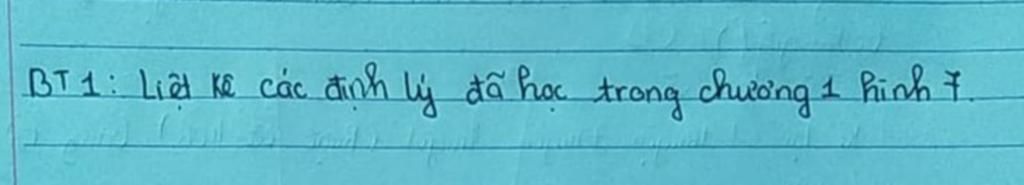 BT1: Liệt kê các định lý đã học trong chương 1 hình 7.